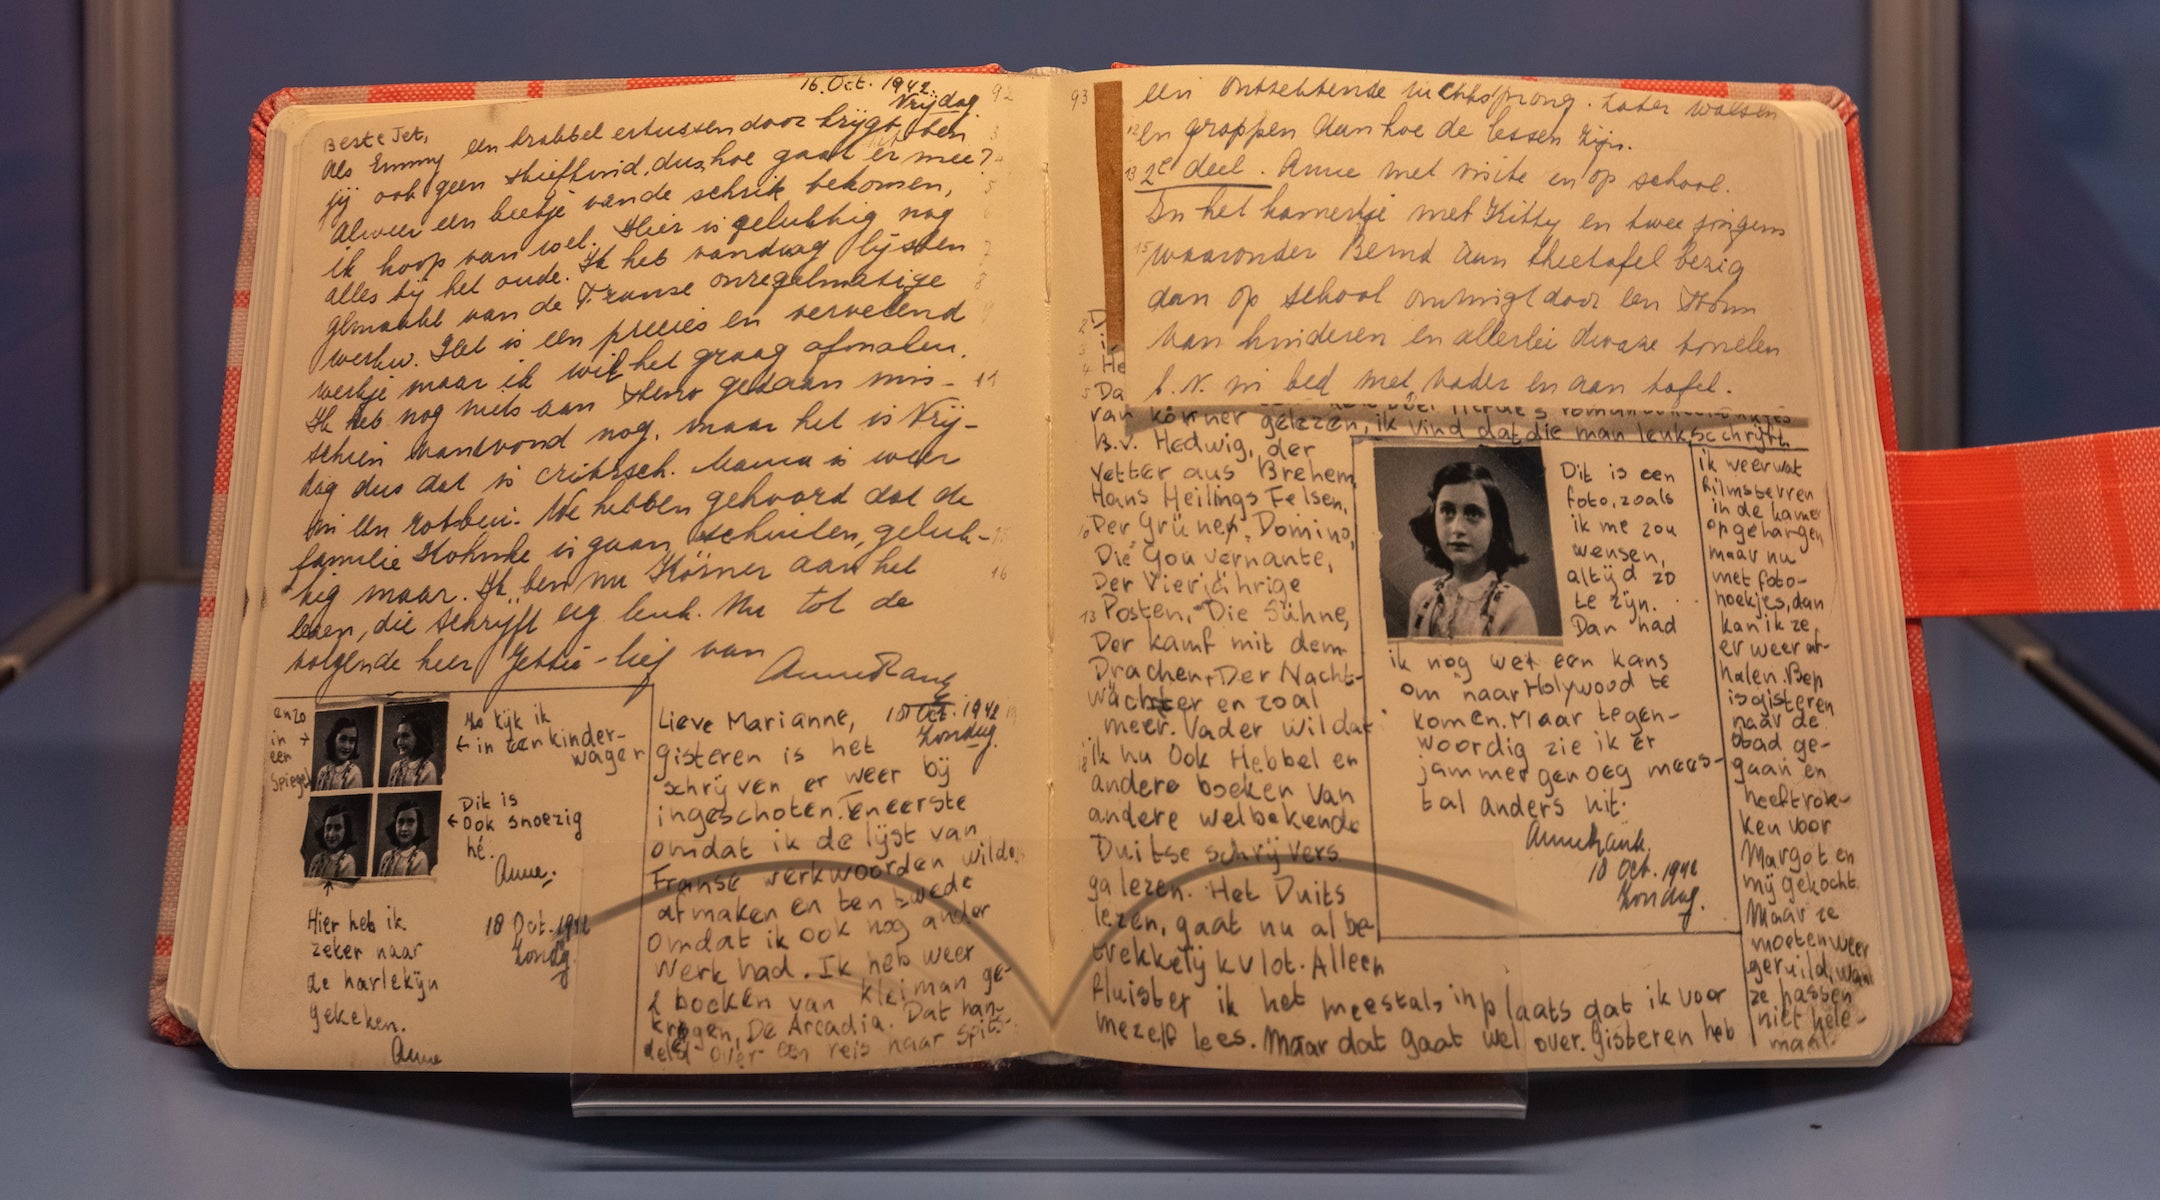 16. Oct. 1942.
Vrijdag
92
Beste Jet,
Als Emmy een krabbel ertussendoor krijgt, ben
jij ook geen stiefkind, dus hoe gaat er mee?
Alweer een beetje van de schrik bekomen,
ik hoop van wel. Hier is gelukkig nog
alles bij het oude. Ik heb vandaag lijsten
gemaakt van de Franse onregelmatige
werkw. Het is een precies en vervelend
werkje maar ik wil het graag afmaken.
Ik heb nog niets aan steno gedaan mis-
schien vanavond nog. maar het is Vrij-
dag dus dat is critisch. Mama is weer
in een rotbui. We hebben gehoord dat de
familie is gaan schuilen, geluk-
kig maar. Ik ben nu Körner aan het
lezen, die schrijft erg leuk. Nu tot de
volgende keer Jettie-lief van
Anne Frank
enzo
in →
een
spiegel
No kijk ik
← in een kinder-
wagen
Dit is
← ook snoezig
hé.
Anne.
Hier heb ik
zeker naar
de harlekijn
gekeken.
Anne
18 Oct. 1942
Zondag.
Lieve Marianne,
18 Oct. 1942
Zondag.
gisteren is het
schrijven er weer bij
ingeschoten. Ten eerste
omdat ik de lijst van
Franse werkwoorden wilde
afmaken en ten twede
omdat ik ook nog ander
werk had. Ik heb weer
2 boeken van kleiman ge-
kregen, De Arcadia. Dat han-
delt over een reis naar Spits-
93
een ontzettende luchtsprong. Later walsen
en grappen dan hoe de lessen zijn.
2e deel. Anne met visite en op school.
In het kamertje met Kitty en twee jongens
waaronder Bernd aan theetafel bezig
dan op school omringt door een storm
van kinderen en allerlei dwaze tonelen
b.v. in bed met vader en aan tafel.
He
Da
van körner gelezen, ik vind dat die man leuk schrijft.
B.v. Hedwig, der
Vetter aus Brehem,
Hans Heilings Felsen,
Der Grünen Domino,
Die Gouvernante,
Der Vierjährige
Posten, Die Sühne,
Der kamf mit dem
Drachen, Der Nacht-
wächter en zoal
meer. Vader wil dat
ik nu ook Hebbel en
andere boeken van
andere welbekende
Duitse schrijvers
ga lezen. Het Duits
lezen, gaat nu al be-
trekkelijk vlot. Alleen
fluister ik het meestal, in plaats dat ik voor
mezelf lees. Maar dat gaat wel over. Gisteren heb
Dit is een
foto, zoals
ik me zou
wensen,
altijd zo
te zijn.
Dan had
ik nog wel een kans
om naar Holywood te
komen. Maar tegen-
woordig zie ik er
jammer genoeg mees-
tal anders uit.
Anne Frank.
18 Oct. 1942
Zondag.
ik weer wat
filmsterren
in de kamer
opgehangen
maar nu
met foto-
hoekjes, dan
kan ik ze,
er weer af-
halen. Bep
is gisteren
naar de
stad ge-
gaan en
heeft rok-
ken voor
Margot en
mij gekocht.
Maar ze
moeten weer
geruild, want
ze passen
niet hele-
maal